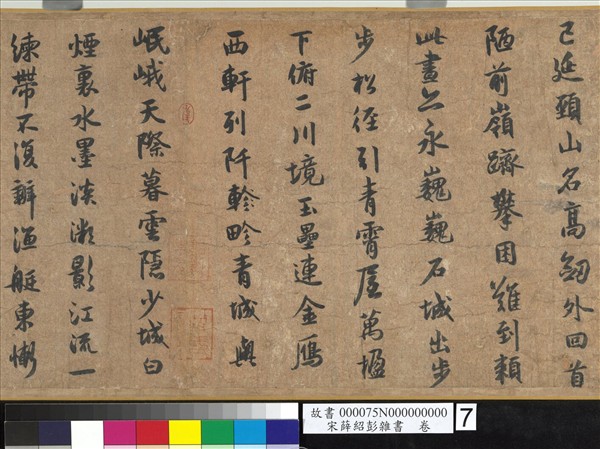 已延頸山名高劒外回首
陋前嶺躋攀困難到賴
此晝亦永巍巍石城出步
步松徑引青霄屋萬楹
下俯二川境玉壘連金鴈
西軒列阡軫畛青城與
岷峨天際暮雲隱少城白
煙裏水墨淡微影江流一
練帶不復辨漁艇東懶
故書 000075N000000000
宋薛紹彭雜書 卷
7